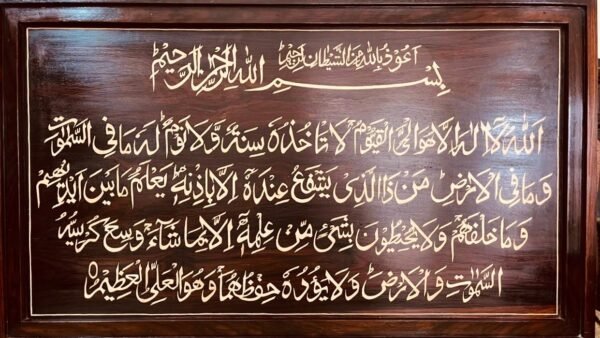 اَعُوْذُ بِاللّٰهِ مِنَ الشَّيْطَانِ الرَّجِيْمِ
بِسْمِ اللّٰهِ الرَّحْمٰنِ الرَّحِيْمِ
اَللّٰهُ لَآ اِلٰهَ اِلَّا هُوَ الْحَىُّ الْقَيُّوْمُ لَا تَاْخُذُهٗ سِنَةٌ وَّلَا نَوْمٌ لَهٗ مَا فِى السَّمٰوٰتِ
وَمَا فِى الْاَرْضِ مَنْ ذَا الَّذِىْ يَشْفَعُ عِنْدَهٗ اِلَّا بِاِذْنِهٖ يَعْلَمُ مَا بَيْنَ اَيْدِيْهِمْ
وَمَا خَلْفَهُمْ وَلَا يُحِيْطُوْنَ بِشَىْءٍ مِّنْ عِلْمِهٖ اِلَّا بِمَا شَآءَ وَسِعَ كُرْسِيُّهُ
السَّمٰوٰتِ وَالْاَرْضَ وَلَا يَـُٔوْدُهٗ حِفْظُهُمَا وَهُوَ الْعَلِىُّ الْعَظِيْمُ